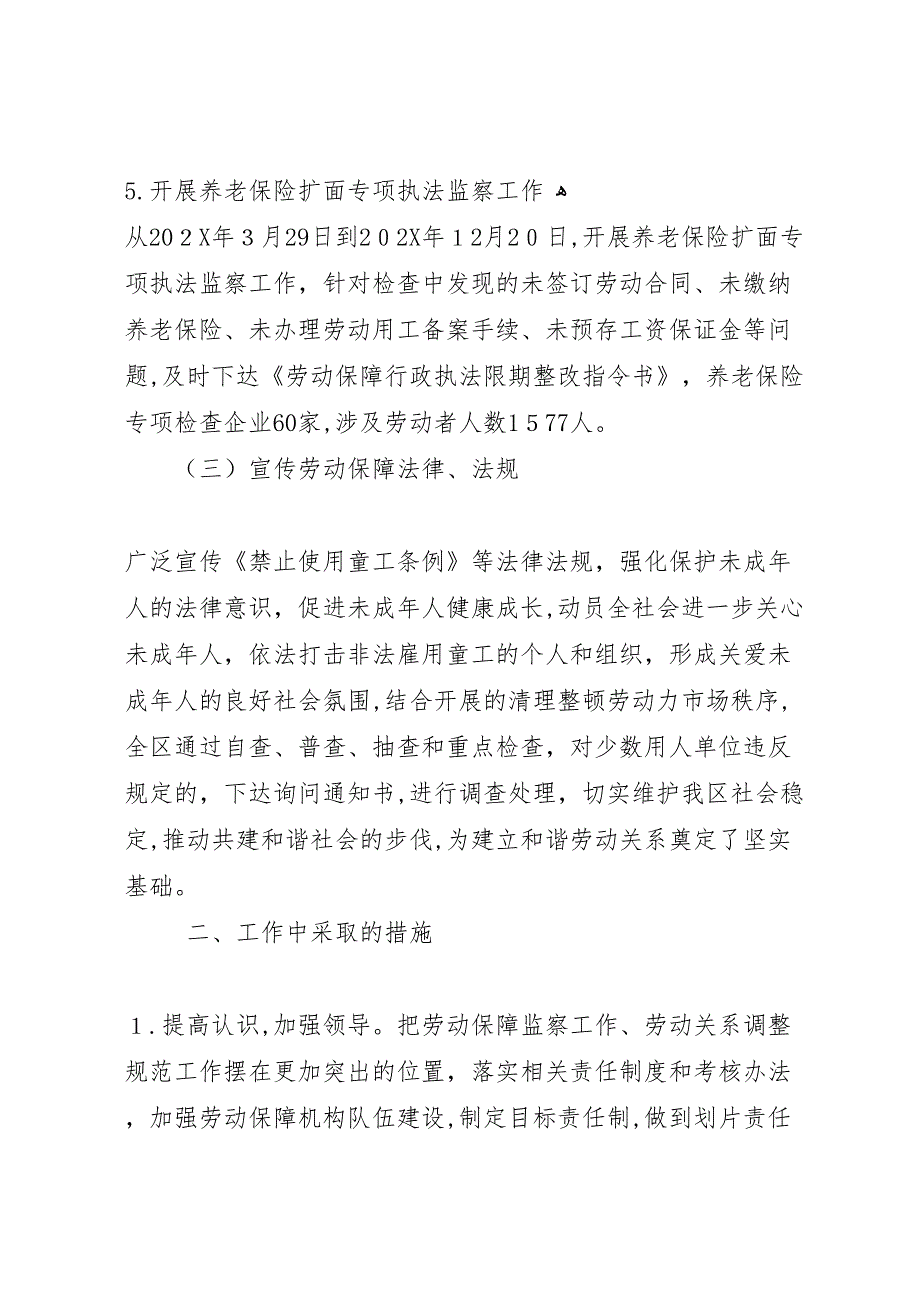 5.开展养老保险扩面专项执法监察工作ﻫ
从20２X年３月29日到2０2X年1２月2０日,开展养老保险扩面专
项执法监察工作，针对检查中发现的未签订劳动合同、未缴纳
养老保险、未办理劳动用工备案手续、未预存工资保证金等问
题,及时下达《劳动保障行政执法限期整改指令书》，养老保险
专项检查企业60家,涉及劳动者人数1５77人。
（三）宣传劳动保障法律、法规
广泛宣传《禁止使用童工条例》等法律法规，强化保护未成年
人的法律意识，促进未成年人健康成长,动员全社会进一步关心
未成年人，依法打击非法雇用童工的个人和组织，形成关爱未
成年人的良好社会氛围,结合开展的清理整顿劳动力市场秩序,
全区通过自查、普查、抽查和重点检查，对少数用人单位违反
规定的，下达询问通知书,进行调查处理，切实维护我区社会稳
定,推动共建和谐社会的步伐,为建立和谐劳动关系奠定了坚实
基础。
二、工作中采取的措施
１.提高认识,加强领导。把劳动保障监察工作、劳动关系调整
规范工作摆在更加突出的位置，落实相关责任制度和考核办法
，加强劳动保障机构队伍建设,制定目标责任制,做到划片责任